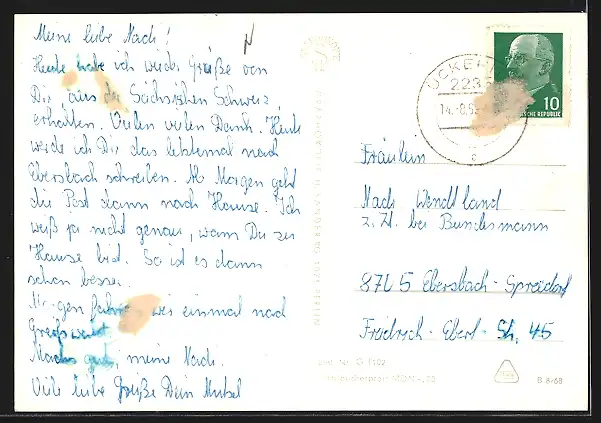 Meine liebe Nadi!
Heute habe ich wieder Grüße von
Dir aus der Sächsischen Schweiz
erhalten. Vielen vielen Dank. Heute
werde ich Dir das letztemal nach
Ebersbach schreiben. Ab Morgen geht
die Post dann nach Hause. Ich
weiß ja nicht genau, wann Du zu
Hause bist. So ist es dann
schon besser.
Morgen fahren wir einmal nach
Greifswald
Machs gut, meine Nadi.
Viele liebe Grüße Dein
ÜCKERI
223
14.-8.6
10
DEUTSCHE REPUBLIK
Fräulein
Nadi Wendtland
z. Zt. bei Bundesmann
8705 Ebersbach-Spreedorf
Friedrich-Ebert-Str. 45
B 6/68